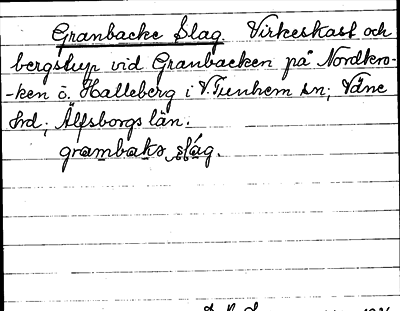 Granbacke Slag. Virkeskast och
bergstup vid Granbacken på Nordkro-
-ken ö. Halleberg i V. Tunhem sn; Väne
hd; Älfsborgs län.
grambaks slag.